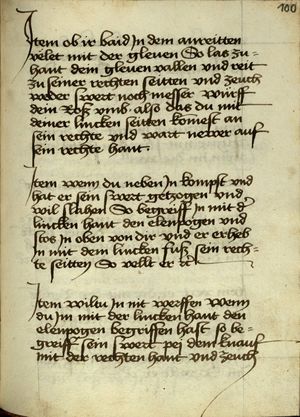 100
Item ob ir baid In dem anreitten
velet mit der gleuen So las zu=
hant dem gleuen vallen und reit
zu seiner rechten seitten und zeuch
weder swert noch messer würff
dein Roß umb also das du mit
deiner lincken seitten komest an
sein rechte und wart newer auf
sein rechte hant.
Item wenn du neben In kompst und
hat er sein swert getzogen und
wil slahen So begreiff In mit d'
lincken hant den elenpogen und
stos In oben von dir und er erheb
In mit dem lincken fuß sein rech=
te seitten So vellt er
Item wiltu In nit werffen Wenn
du In mit der lincken hant den
elenpogen begriffen hast so be=
greiff sein swert pej dem knauf
mit der rechten hant und zeuch